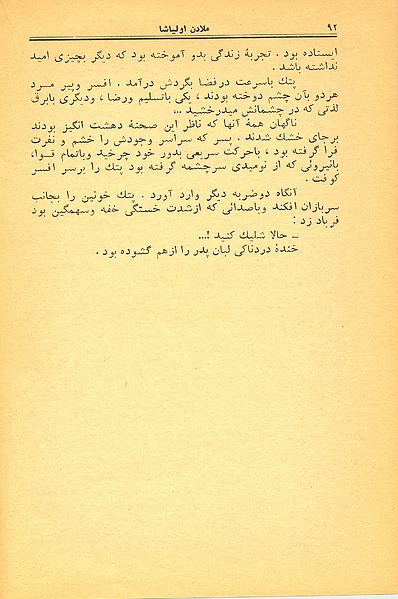 ۹۲ ملادن اولیاشا
ایستاده بود . تجربهٔ زندگی بدو آموخته بود که دیگر بچیزی امید
نداشته باشد .
پتك باسرعت درفضا بگردش درآمد . افسر وپیر مـرد
هردو بآن چشم دوخته بودند ، یکی باتسلیم ورضا ، ودیگری بابرق
لذتی که در چشمانش میدرخشید ...
ناگهان همهٔ آنها که ناظر این صحنهٔ دهشت انگیز بودند
برجای خشك شدند . پسر که سراسر وجودش را خشم و نفرت
فرا گرفته بود ، باحرکت سریعی بدور خود چرخید وباتمام قـوا،
بانیروئی که از نومیدی سرچشمه گرفته بود پتك را برسر افسر
کوفت .
آنگاه دوضربه دیگر وارد آورد . پتك خونین را بجانب
سربازان افکند وباصدائی که ازشدت خستگی خفه وسهمگین بود
فریاد زد :
ــ حالا شلیك کنید !...
خندهٔ دردناکی لبان پدر را ازهم گشوده بود .